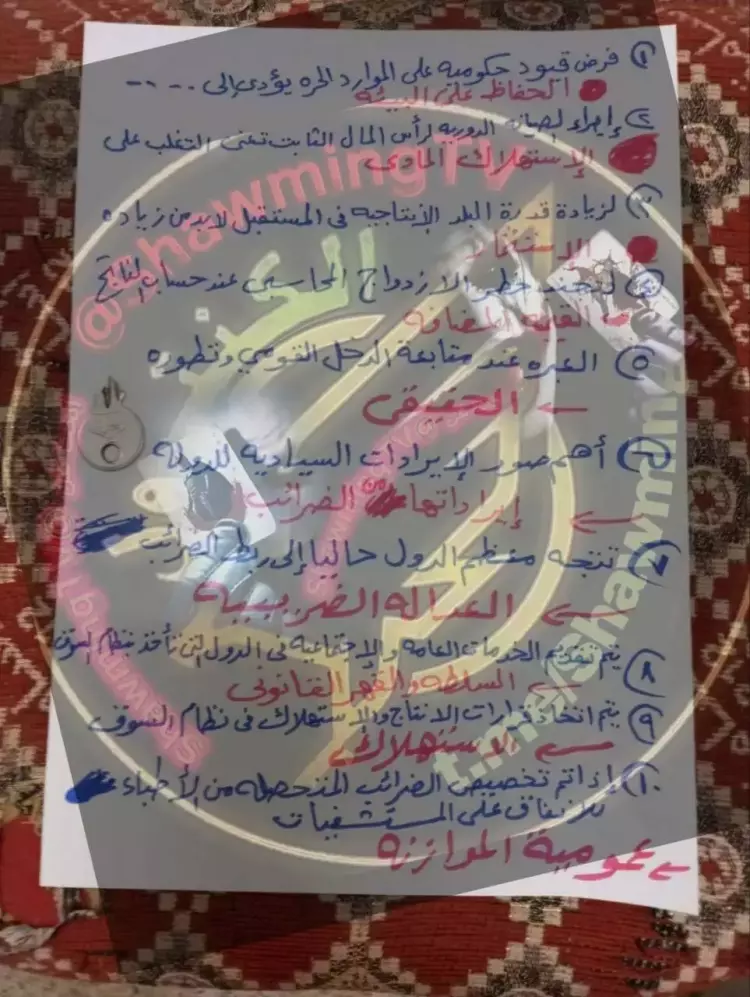 ١ فرض قيود حكوميه على الموارد الحره يؤدى إلى ....
الحفاظ على البيئه
٢ إجراء لصيانه الدوريه لرأس المال الثابت تعنى التغلب على
الإستهلاك المادى
٣ لزيادة قدرة البلد الإنتاجيه فى المستقبل لابد من زياده
الإستثمار
٤ لتجنب خطر الازدواج المحاسبى عند حساب الناتج
القيمه المضافه
٥ العبره عند متابعة الدخل القومى وتطوره
الحقيقى
٦ أهم صور الإيرادات السياديه للدوله
إيراداتها من الضرائب
٧ تتجه معظم الدول حاليا إلى ربط الضرائب
العداله الضريبيه
٨ يتم تقديم الخدمات العامه والإجتماعيه فى الدول التى تأخذ بنظام السوق
السلطه والقهر القانونى
٩ يتم اتخاذ قرارات الانتاج والإستهلاك فى نظام السوق
الاستهلاك
١٠ إذا تم تخصيص الضرائب المتحصله من الأطباء
للانفاق على المستشفيات
عمومية الموازنه
@ShawmingTV
t.me/shawming